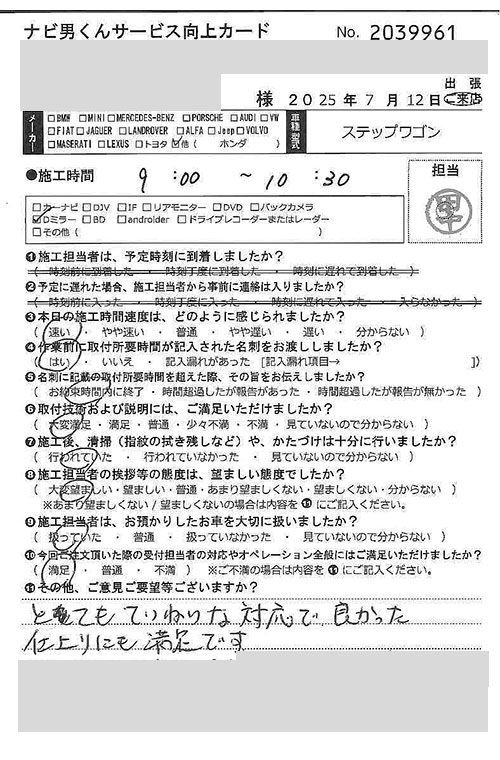 ナビ男くんサービス向上カード No. 2039961
様 2025年7月12日 出張 ご来店
メーカー □BMW □MINI □MERCEDES-BENZ □PORSCHE □AUDI □VW
□FIAT □JAGUER □LANDROVER □ALFA □Jeep □VOLVO
□MASERATI □LEXUS □トヨタ ☑他( ホンダ )
車種型式 ステップワゴン
●施工時間 9:00 ~ 10:30
担当
□カーナビ □DJV □IF □リアモニター □DVD □バックカメラ
☑Dミラー □BD □androider □ドライブレコーダーまたはレーダー
□その他( )
❶施工担当者は、予定時刻に到着しましたか?
( 時刻前に到着した ・ 時刻丁度に到着した ・ 時刻に遅れて到着した )
❷予定に遅れた場合、施工担当者から事前に連絡は入りましたか?
( 時刻前に入った ・ 時刻丁度に入った ・ 時刻に遅れて入った ・ 入らなかった )
❸本日の施工時間速度は、どのように感じられましたか?
( 速い ・ やや速い ・ 普通 ・ やや遅い ・ 遅い ・ 分からない )
❹作業前に取付所要時間が記入された名刺をお渡ししましたか?
( はい ・ いいえ ・ 記入漏れがあった [記入漏れ項目→ ])
❺名刺に記載の取付所要時間を超えた際、その旨をお伝えしましたか?
( お約束時間内に終了 ・ 時間超過したが報告があった ・ 時間超過したが報告が無かった )
❻取付技術および説明には、ご満足いただけましたか?
( 大変満足 ・ 満足 ・ 普通 ・ 少々不満 ・ 不満 ・ 見ていないので分からない )
❼施工後、清掃(指紋の拭き残しなど)や、かたづけは十分に行いましたか?
( 行われていた ・ 行われていなかった ・ 見ていないので分からない )
❽施工担当者の挨拶等の態度は、望ましい態度でしたか?
( 大変望ましい・望ましい・普通・あまり望ましくない・望ましくない・分からない )
※あまり望ましくない/望ましくないの場合は内容を⓫にご記入ください。
❾施工担当者は、お預かりしたお車を大切に扱いましたか?
( 扱っていた ・ 普通 ・ 扱っていなかった ・ 見ていないので分からない )
❿今回ご注文頂いた際の受付担当者の対応やオペレーション全般にはご満足いただけましたか?
( 満足 ・ 普通 ・ 不満 ) ※ご不満の場合は内容を⓫にご記入ください。
⓫その他、ご意見ご要望等ございますか?
とてもていねいな対応で良かった
仕上りにも満足です